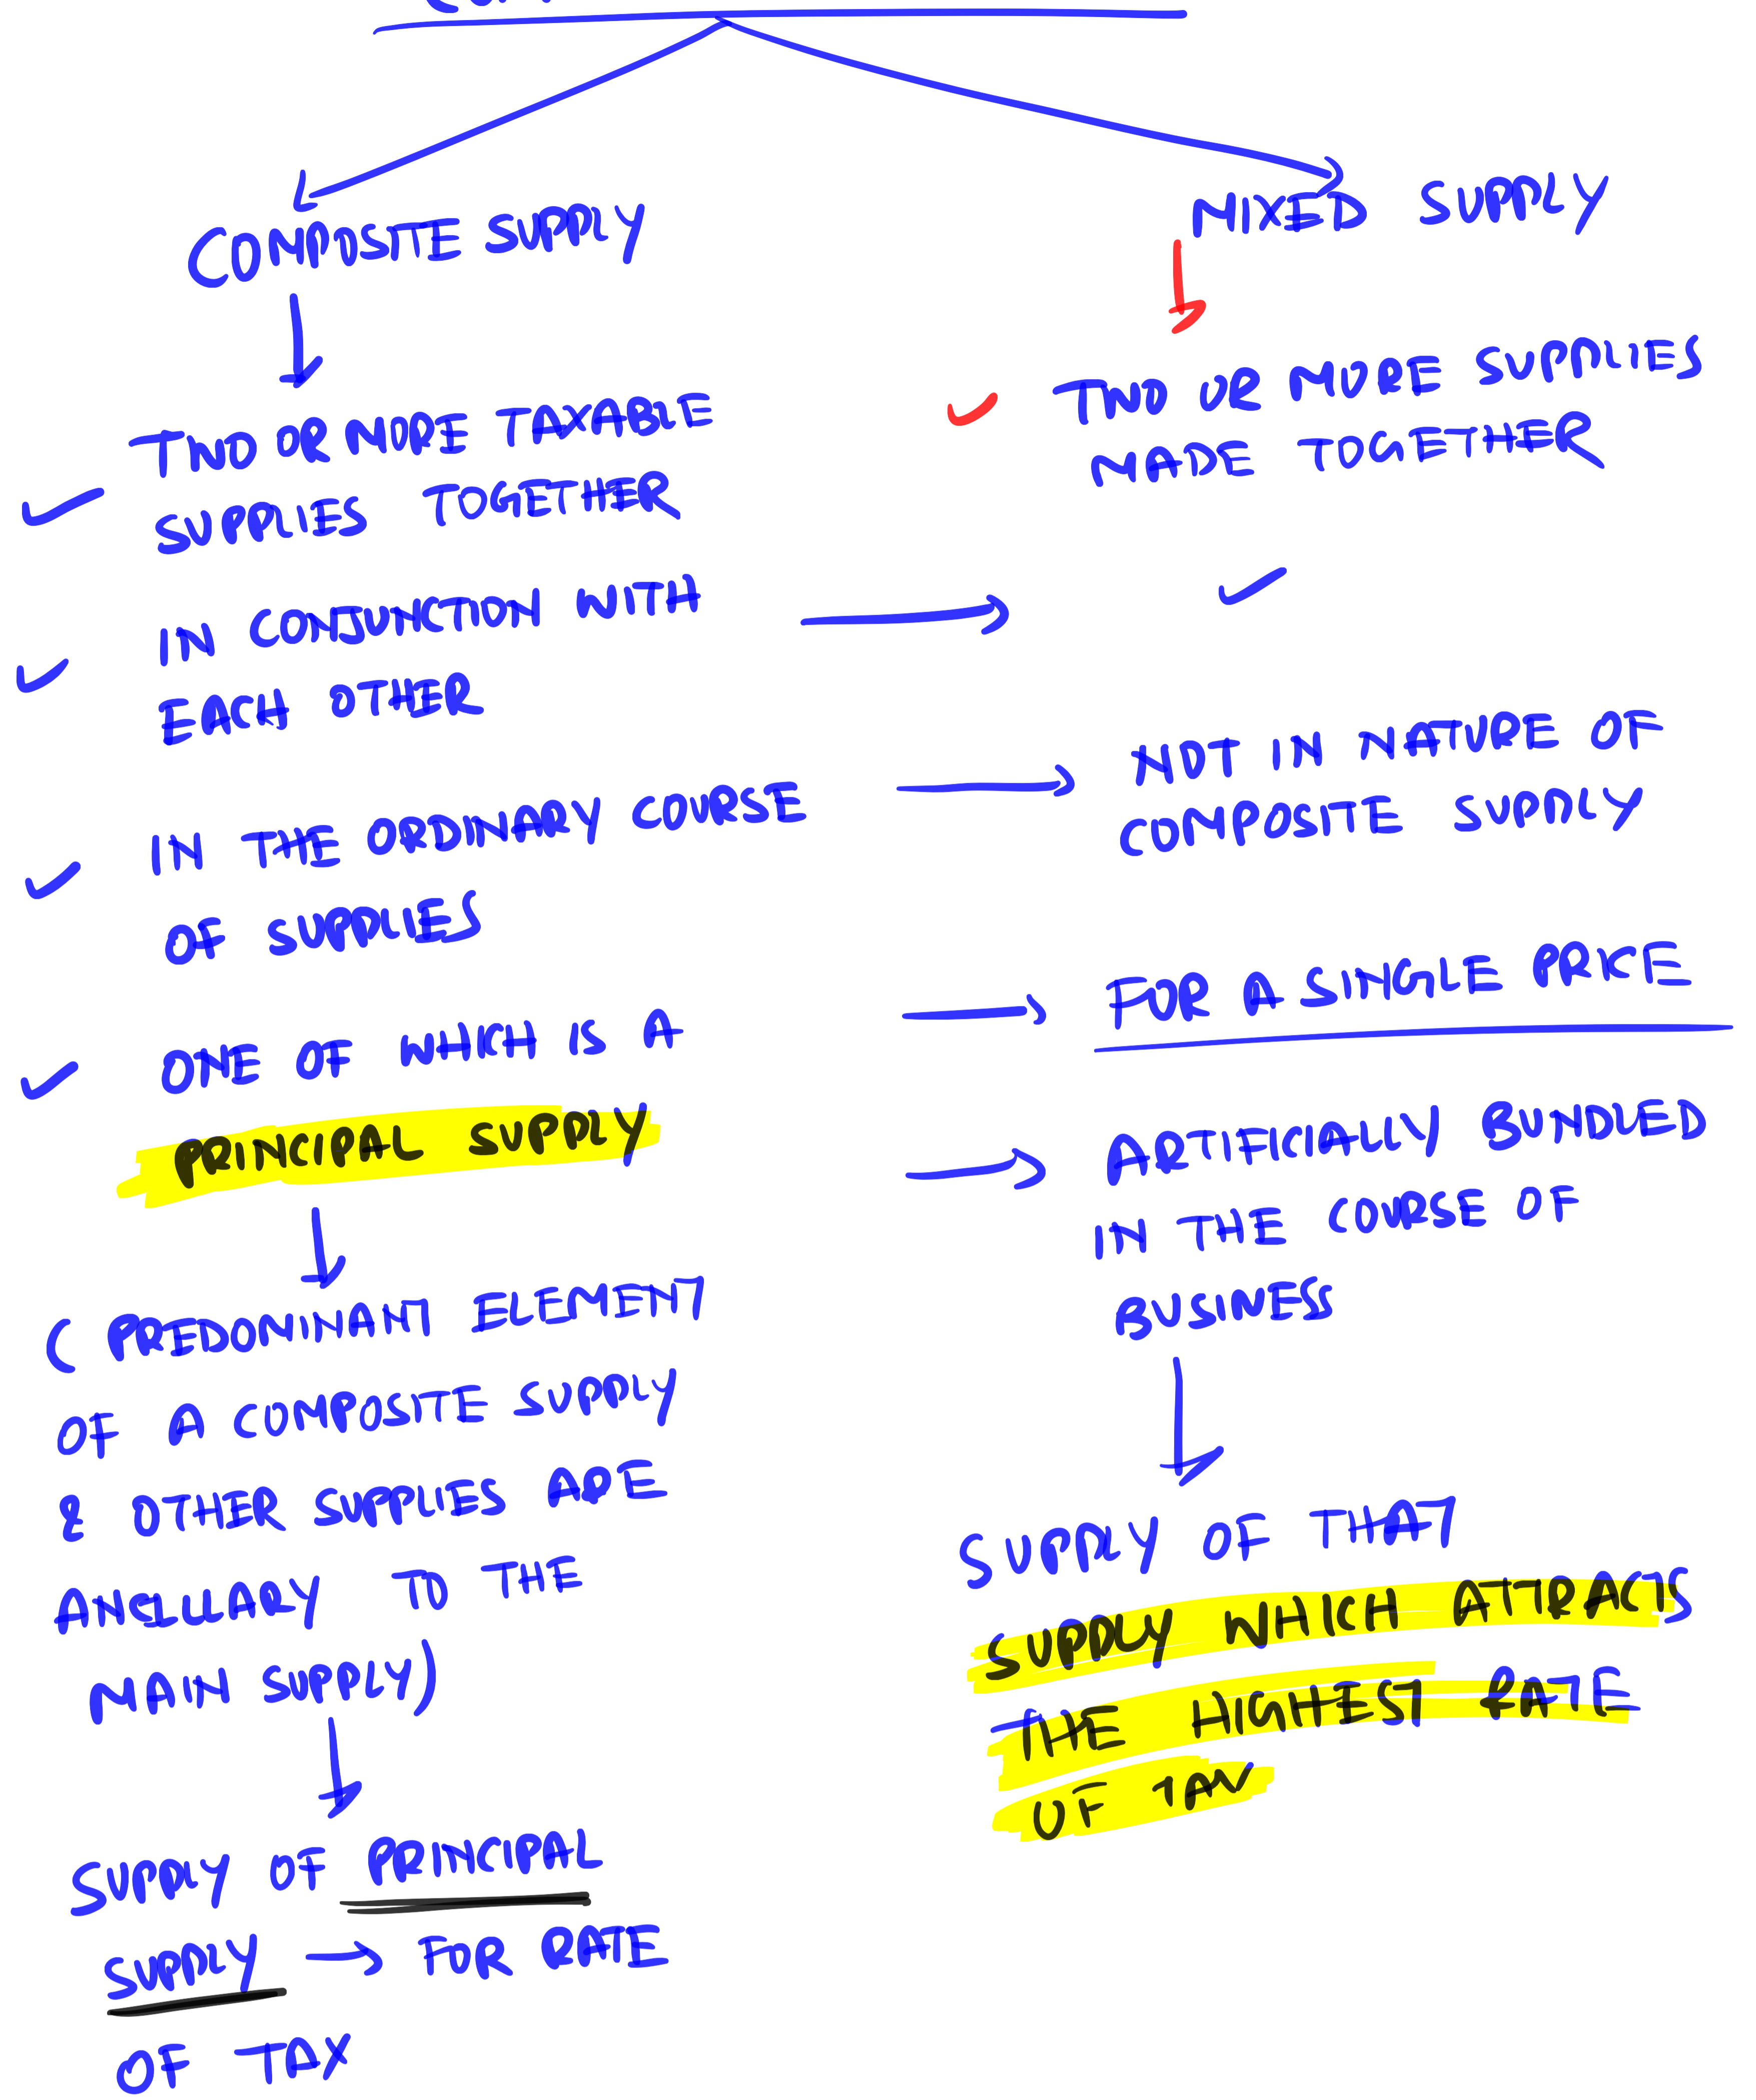 COMPOSITE SUPPLY
TWO OR MORE TAXABLE
SUPPLIES TOGETHER
IN CONJUNCTION WITH
EACH OTHER
IN THE ORDINARY COURSE
OF SUPPLIES
ONE OF WHICH IS A
PRINCIPAL SUPPLY
( PREDOMINANT ELEMENT
OF A COMPOSITE SUPPLY
& OTHER SUPPLIES ARE
ANCILLARY TO THE
MAIN SUPPLY)
SUPPLY OF PRINCIPAL
SUPPLY → FOR RATE
OF TAX
MIXED SUPPLY
TWO OR MORE SUPPLIES
MADE TOGETHER
NOT IN NATURE OF
COMPOSITE SUPPLY
FOR A SINGLE PRICE
ARTIFICIALLY BUNDLED
IN THE COURSE OF
BUSINESS
SUPPLY OF THAT
SUPPLY WHICH ATTRACTS
THE HIGHEST RATE
OF TAX